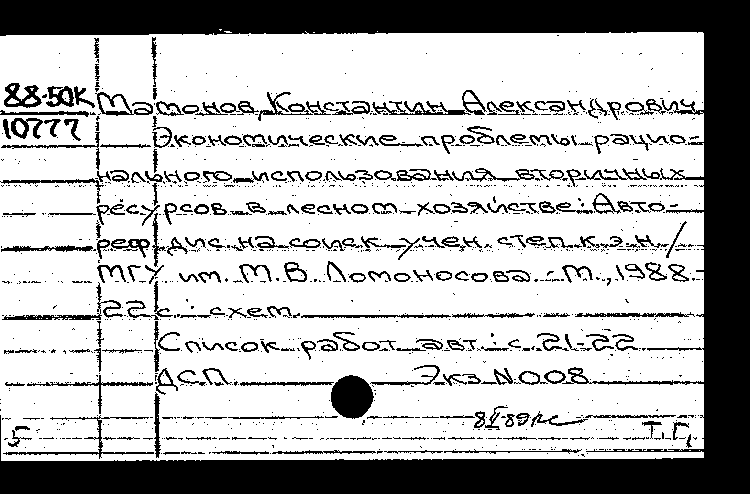 88-50К Мамонов, Константин Александрович
10777 Экономические проблемы рацио-
нального использования вторичных
ресурсов в лесном хозяйстве: Авто-
реф. дис. на соиск. учен. степ. к.э.н. /
МГУ им. М.В. Ломоносова. - М., 1988-
22 с.: схем.
Список работ авт.: с. 21-22
ДСП Экз N008
5 Т.Г.